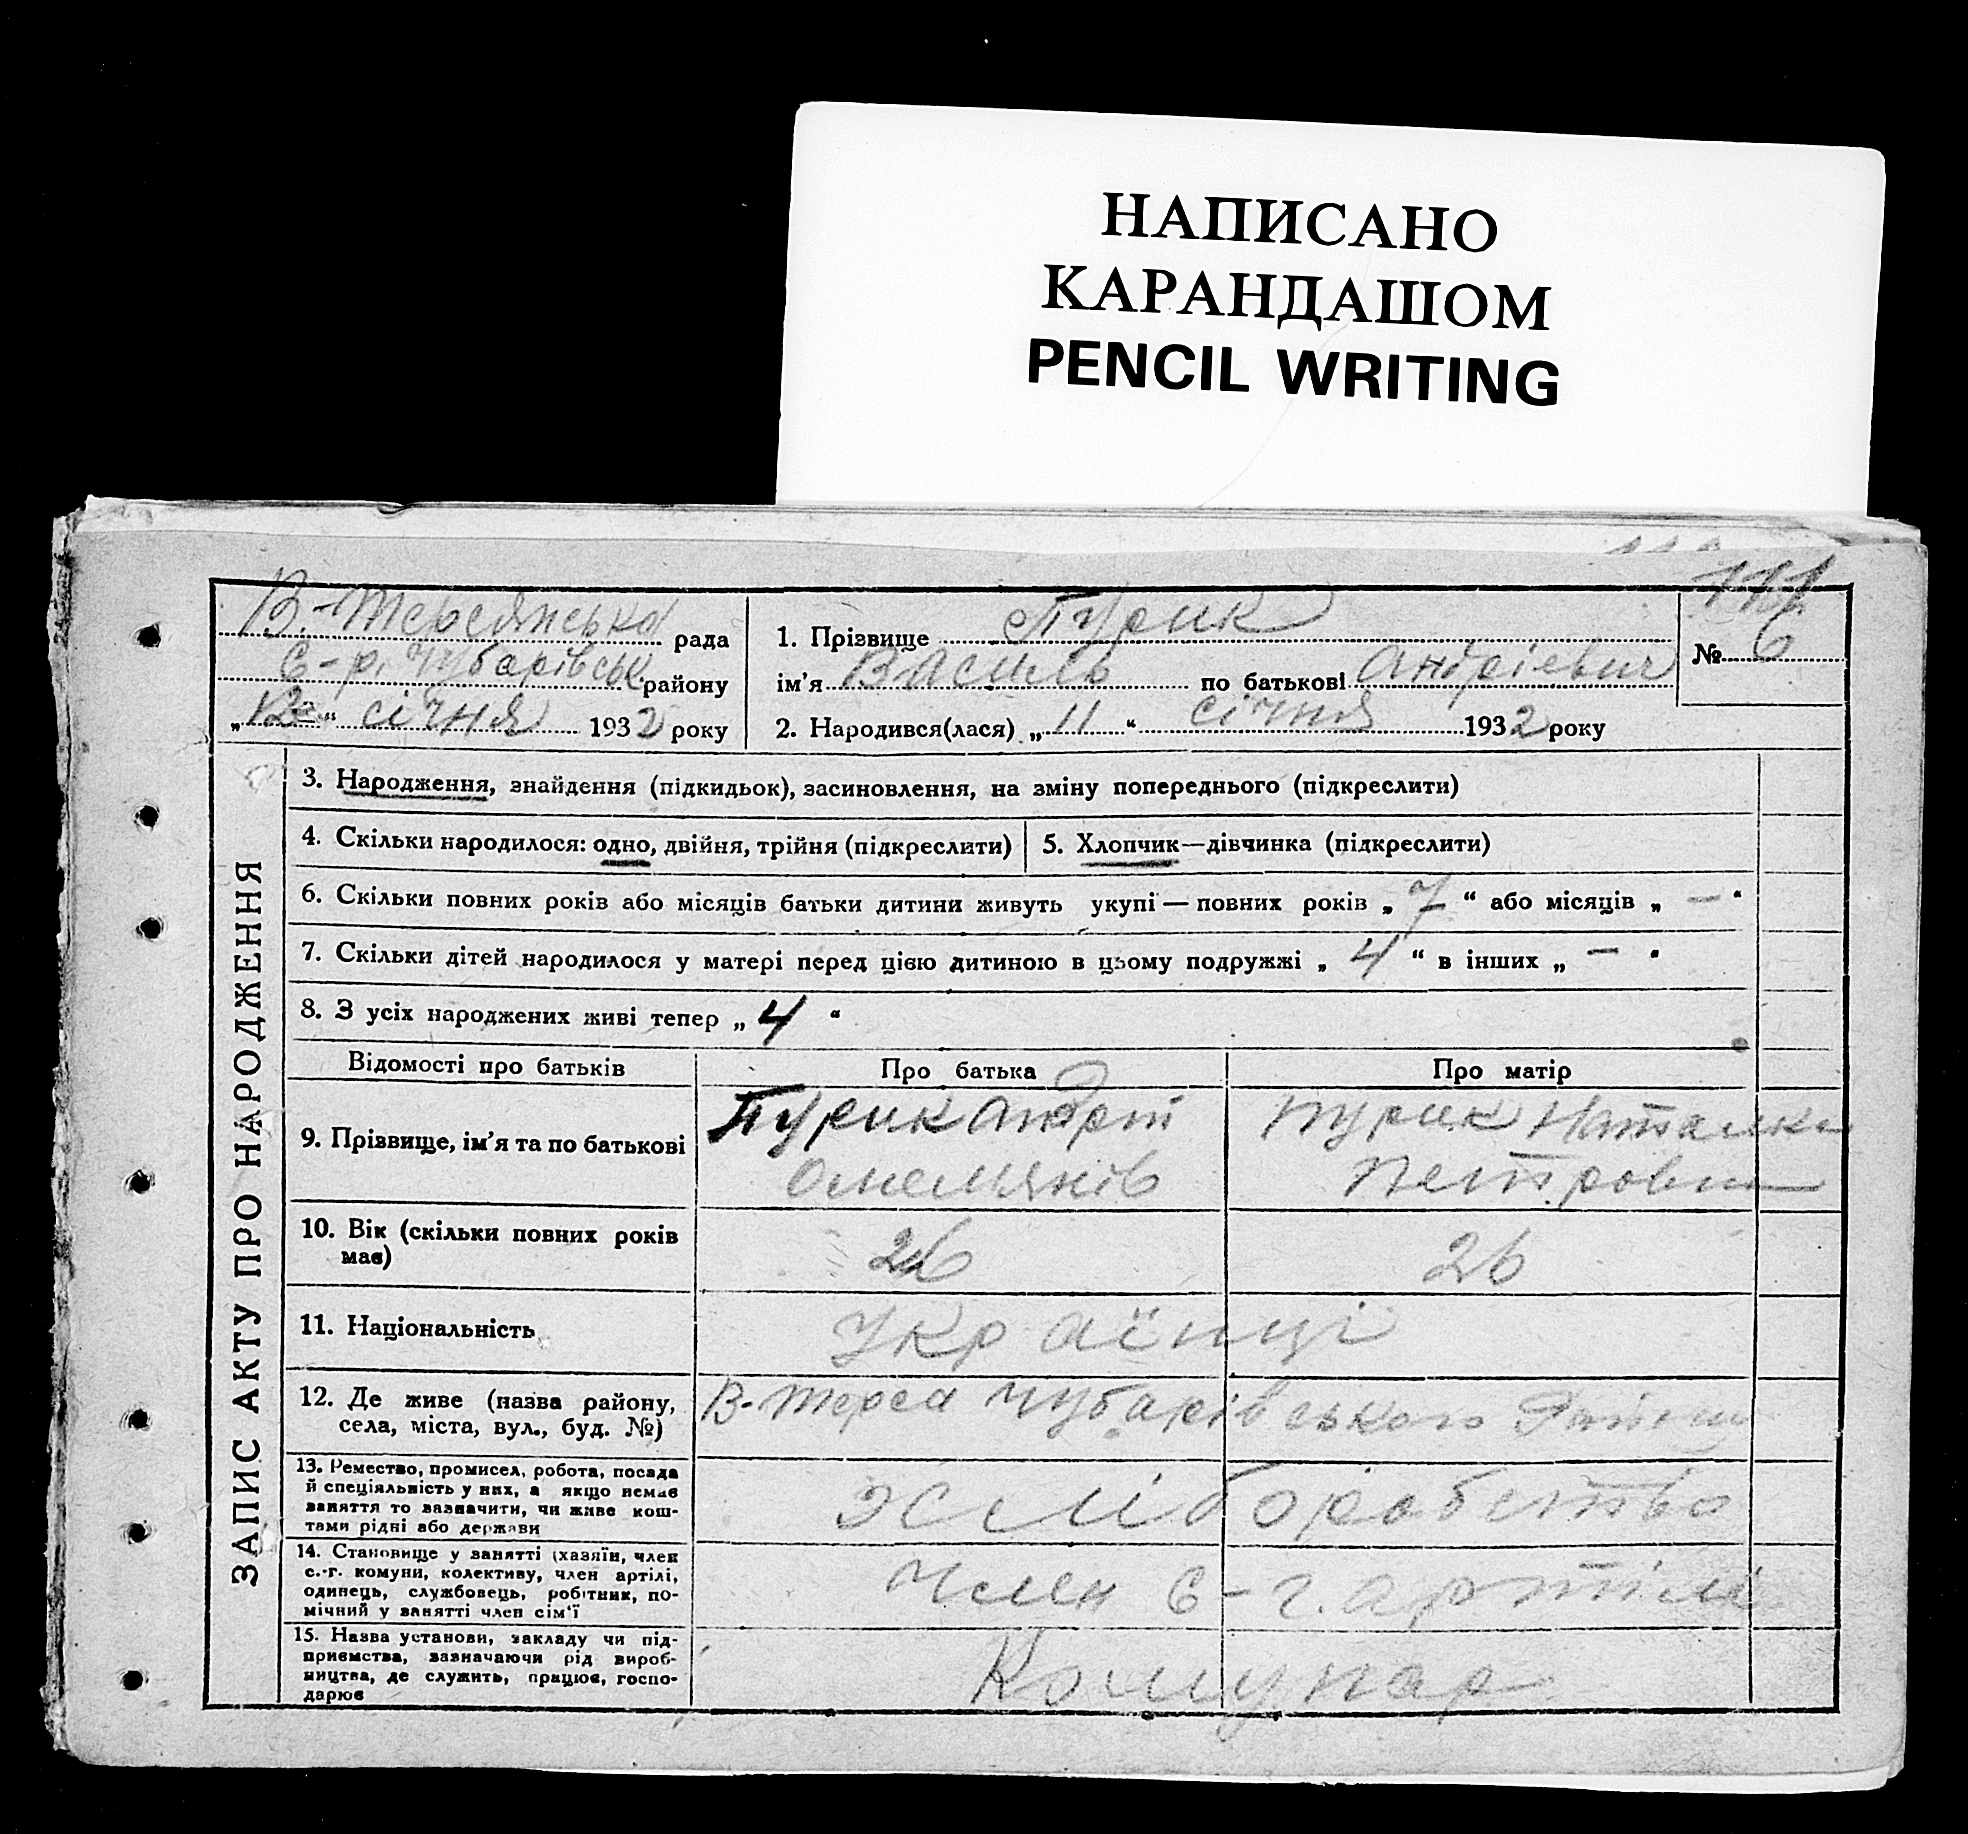 НАПИСАНО
КАРАНДАШОМ
PENCIL WRITING
111
В.-Терсянська рада
Є-р. Чубарівськ. району
„12“ січня 1932 року
1. Прізвище Пурик
№ 6
ім’я Василь по батькові Андрієвич
2. Народився(лася) „11“ січня 1932 року
ЗАПИС АКТУ ПРО НАРОДЖЕННЯ
3. Народження, знайдення (підкидьок), засиновлення, на зміну попереднього (підкреслити)
4. Скільки народилося: одно, двійня, трійня (підкреслити)
5. Хлопчик—дівчинка (підкреслити)
6. Скільки повних років або місяців батьки дитини живуть укупі — повних років „7“ або місяців „—“
7. Скільки дітей народилося у матері перед цією дитиною в цьому подружжі „4“ в інших „—“
8. З усіх народжених живі тепер „4“
Відомості про батьків
Про батька
Про матір
9. Прізвище, ім’я та по батькові
Пурик
Омелянів
Пурик Наталка
Петровна
10. Вік (скільки повних років має)
26
26
11. Національність
Українці
12. Де живе (назва району,
села, міста, вул., буд. №)
В-Терса Чубарівського
13. Ремество, промисел, робота, посада
й спеціяльність у них, а якщо немає
заняття то зазначити, чи живе кош-
тами рідні або держави
Хліборобство
14. Становище у занятті (хазяїн, член
с.-г. комуни, колективу, член артілі,
одинець, службовець, робітник, по-
мічний у занятті член сім’ї
Член с-г. артілі
15. Назва установи, закладу чи під-
приємства, зазначаючи рід вироб-
ництва, де служить, працює, госпо-
дарює
Комунар